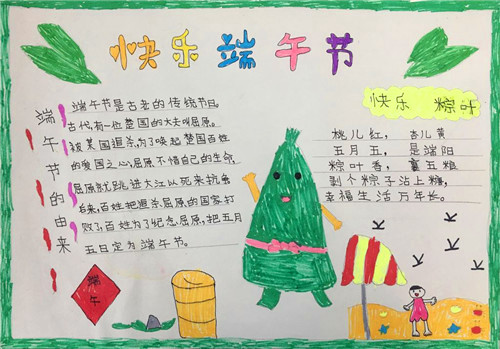 快乐端午节
端午节的由来
端午节是古老的传统节日。
古代,有一位楚国的大夫叫屈原。
被美国追杀,为了唤起楚国百姓
的爱国之心,屈原不惜自己的生命,
屈原就跳进大江以死来抗争
后来,百姓把追杀屈原的国家打
败了,百姓为了纪念屈原,把五月
五日定为端午节。
快乐 粽叶
桃儿红, 杏儿黄
五月五, 是端阳
粽叶香, 裹五粮
剥个粽子沾上糖,
幸福生活万年长。
端午